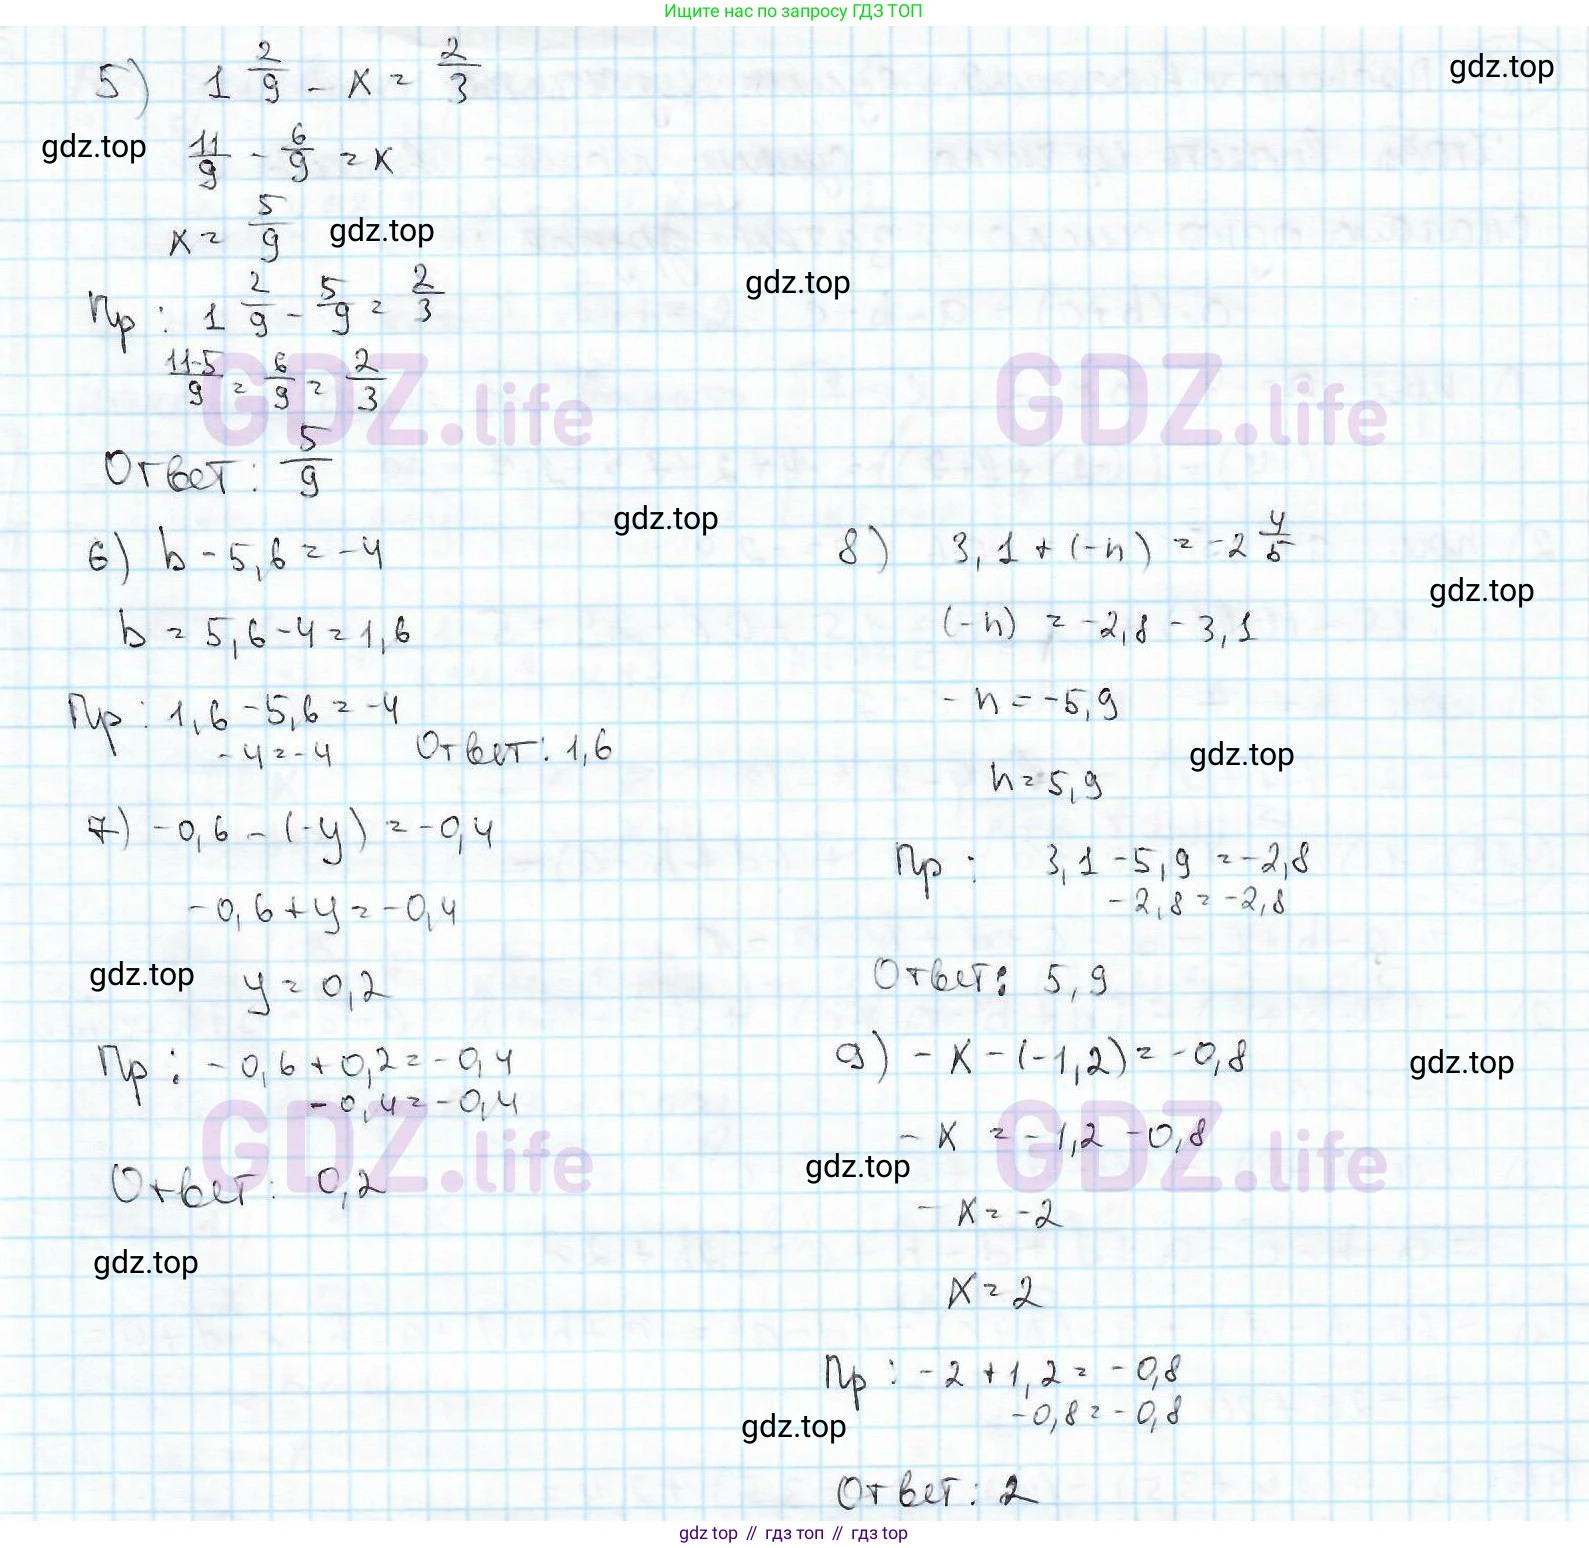 Ищите нас по запросу ГДЗ ТОП
5) 1 2/9 - x = 2/3
gdz.top
gdz.top
11/9 - 6/9 = x
x = 5/9
gdz.top
gdz.top
Пр: 1 2/9 - 5/9 = 2/3
11-5/9 = 6/9 = 2/3
GDZ.life
GDZ.life
Ответ: 5/9
gdz.top
6) b - 5,6 = -4
b = 5,6 - 4 = 1,6
Пр: 1,6 - 5,6 = -4
-4 = -4
Ответ: 1,6
7) -0,6 - (-y) = -0,4
-0,6 + y = -0,4
gdz.top
y = 0,2
Пр: -0,6 + 0,2 = -0,4
-0,4 = -0,4
GDZ.life
Ответ: 0,2
gdz.top
8) 3,1 + (-n) = -2 4/5
gdz.top
(-n) = -2,8 - 3,1
-n = -5,9
gdz.top
n = 5,9
Пр: 3,1 - 5,9 = -2,8
-2,8 = -2,8
Ответ: 5,9
9) -x - (-1,2) = -0,8
gdz.top
-x = -1,2 - 0,8
GDZ.life
gdz.top
-x = -2
x = 2
Пр: -2 + 1,2 = -0,8
-0,8 = -0,8
gdz.top
Ответ: 2
gdz top // гдз топ // гдз top